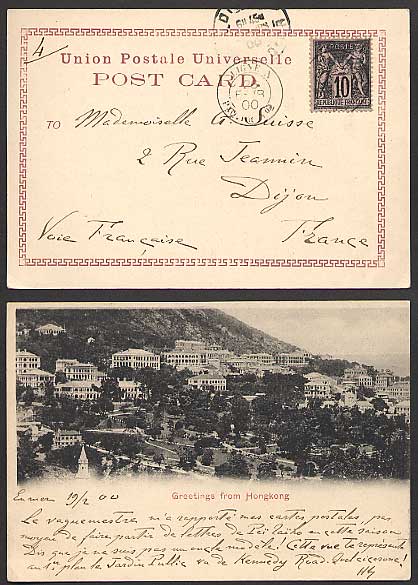 4
Union Postale Universelle
POST CARD.
LIGNE N
00
10
POSTE
REPUBLIQUE FRANCAISE
TO Mademoiselle Suisse
2 Rue Jeannin
Dijon
Voie Française France
En mer 19/2 00
Greetings from Hongkong
Le vaguemestre m'a rapporté mes cartes postales, pas
moyen de faire partir de lettres de en cette saison
Dis que je ne suis pas un oncle modèle! Cette vue te représente
au 1er plan le Jardin Public vu de Kennedy Road.